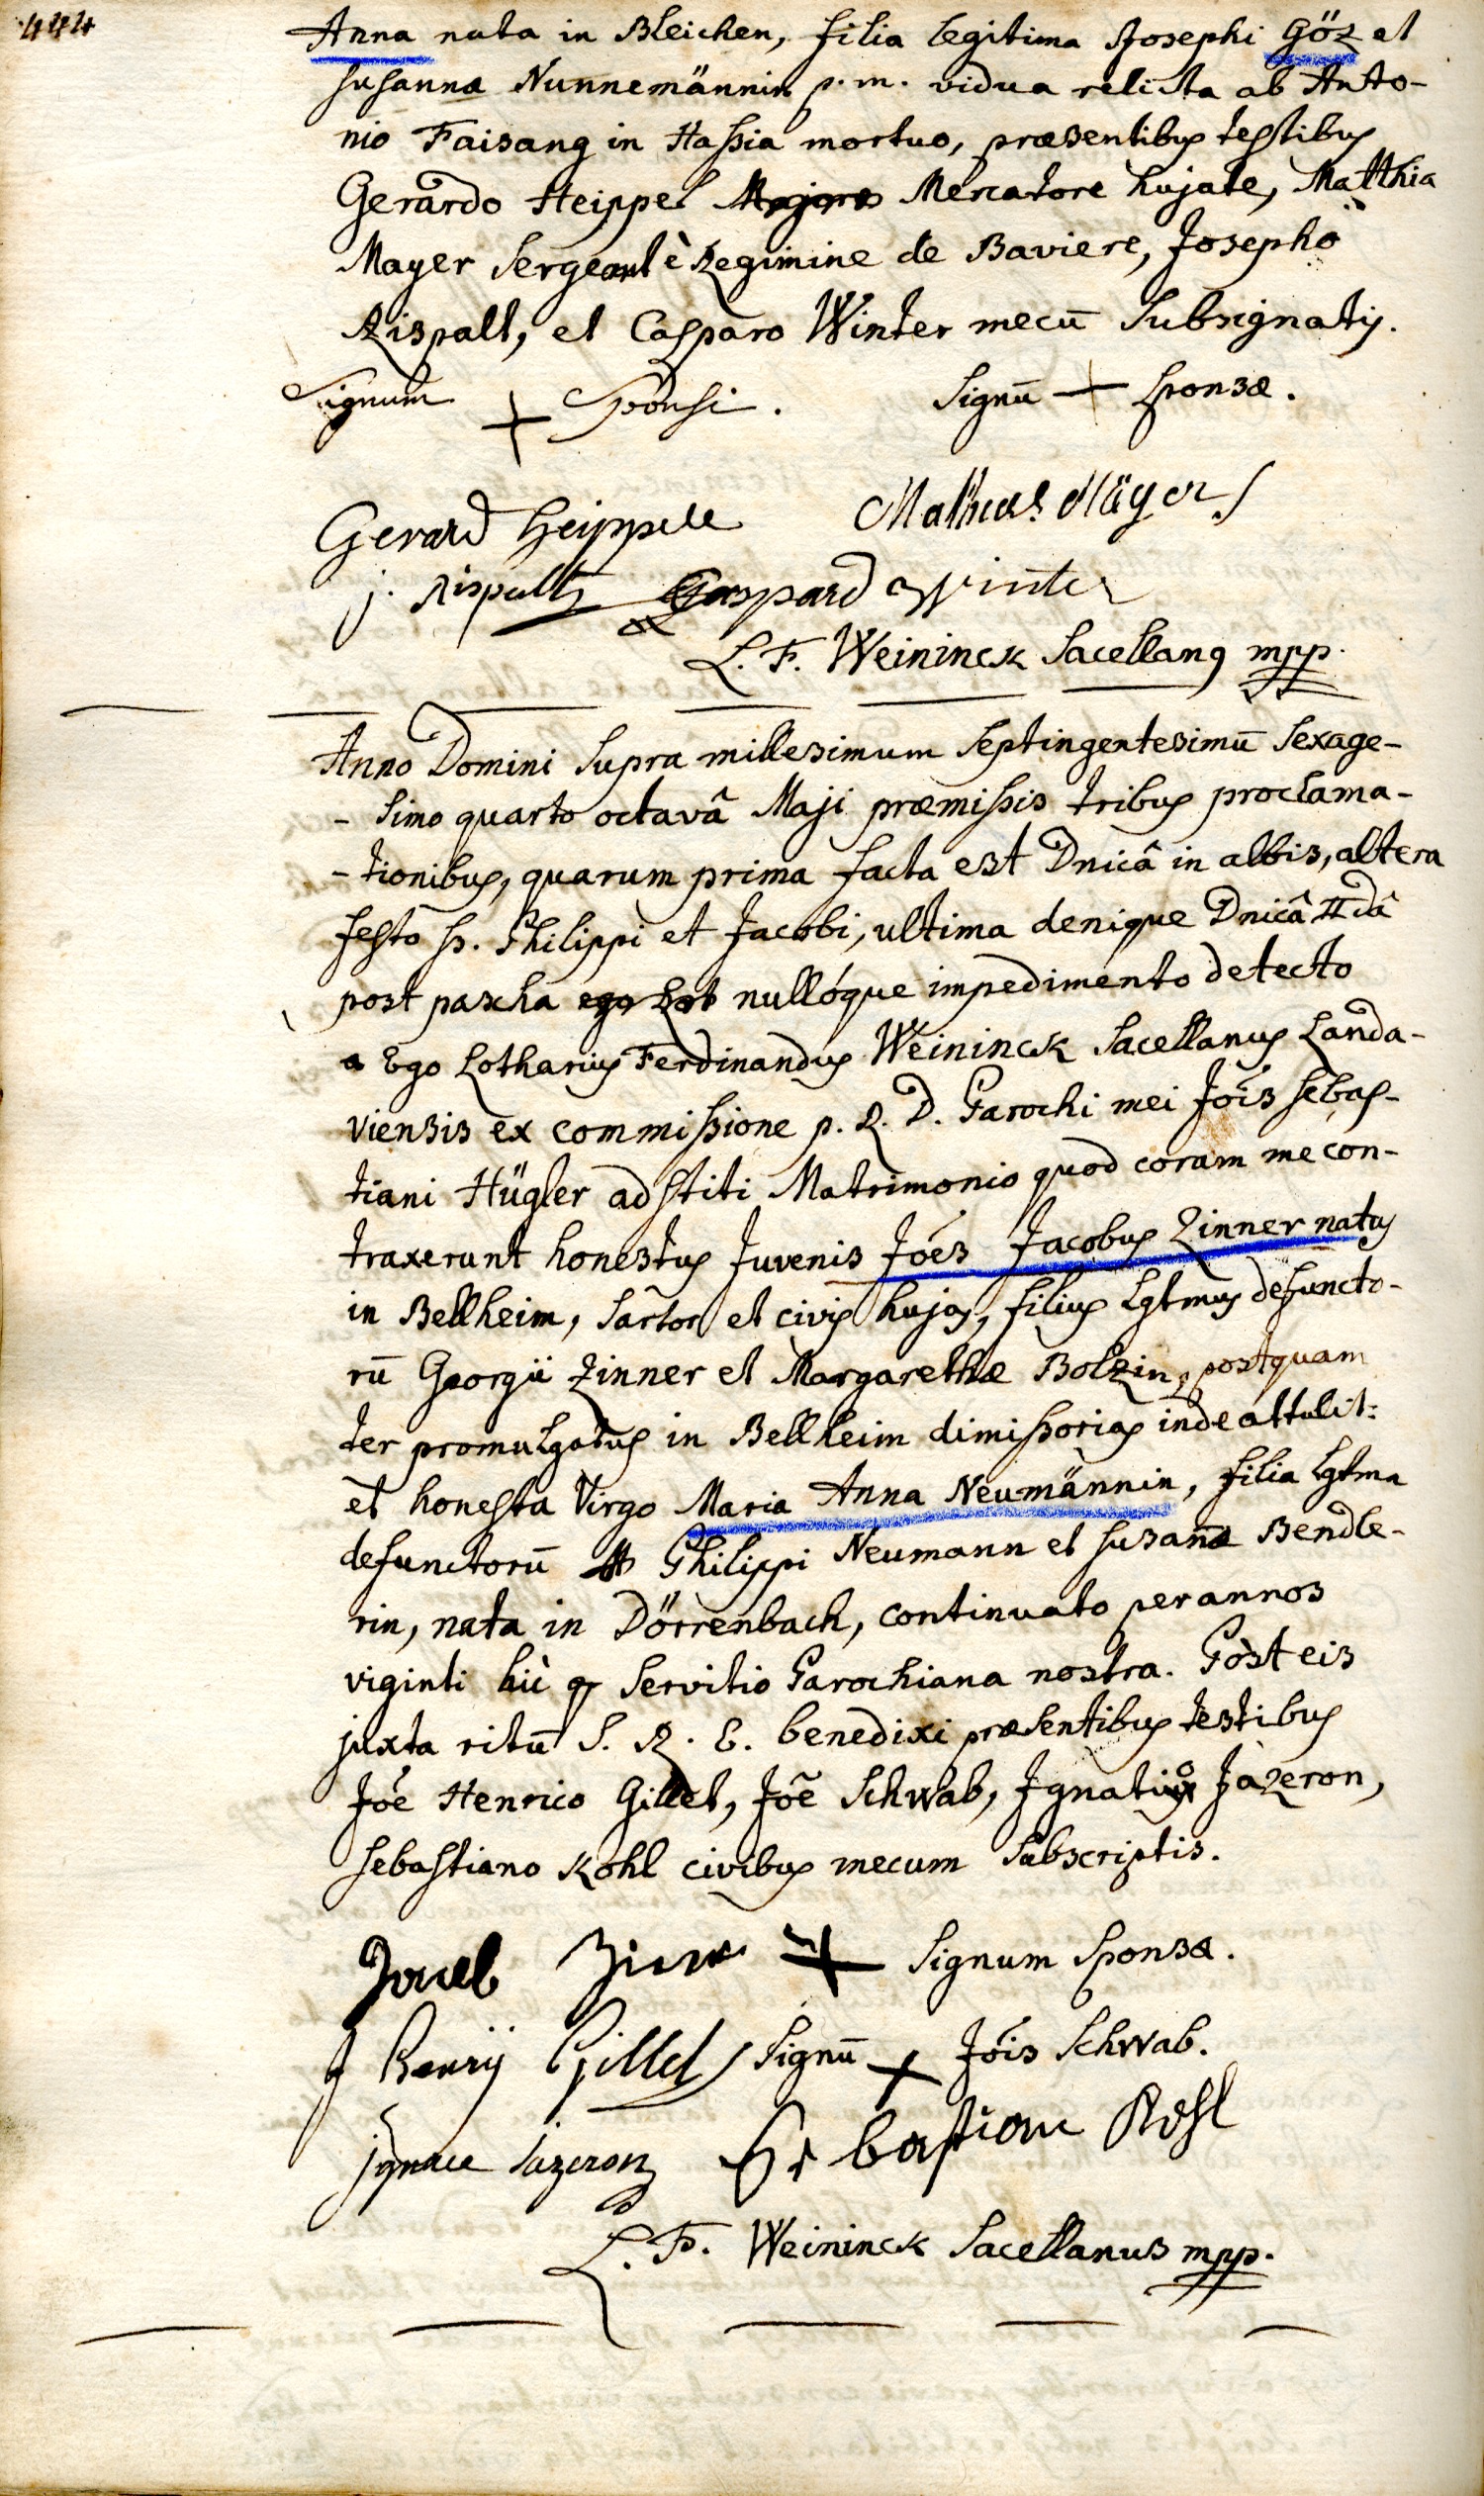 444
Anna nata in Bleichen, filia legitima Josephi Göz et
Susannæ Nunnemännin p. m. vidua relicta ab Anto-
nio Faisang in Hassia mortuo, præsentibus testibus
Gerardo Heippel Mercatore hujate, Matthia
Mayer Sergeant è Regimine de Baviere, Josepho
Rispalt, et Casparo Winter mecū Subsignatis.
Signum + Sponsi. Signū + Sponsæ.
Gerard Heippell Matheus Mäyer
j. Rispaltz Gaspard Winter
L. F. Weininck Sacellanus mpp.
Anno Domini Supra millesimum Septingentesimū Sexage-
- simo quarto octavâ Maji præmissis tribus proclama-
- tionibus, quarum prima facta est Dnicâ in albis, altera
festo ss. Philippi et Jacobi, ultima denique Dnicâ IIdâ
post pascha ego Lot nullóque impedimento detecto
a Ego Lotharius Ferdinandus Weininck Sacellanus Landa-
viensis ex commissione p. R. D. Parochi mei Jōis Sebas-
tiani Hügler adstiti Matrimonio quod coram me con-
traxerunt honestus Juvenis Jōes Jacobus Zinner natus
in Bellheim, Sartor et civis hujas, filius Lgtmus defuncto-
rū Georgii Zinner et Margarethæ Bolzin, postquam
ter promulgatus in Bellheim dimissorias inde attulit:
et honesta Virgo Maria Anna Neumännin, filia Lgtma
defunctorū Philippi Neumann et Susanæ Bendle-
rin, nata in Dörrenbach, continuato per annos
viginti hic Servitio Parochiana nostra. Pòst eis
juxta ritū S. R. E. benedixi præsentibus testibus
Jōe Henrico Gillet, Jōe Schwab, Ignatio Jazeron,
Sebastiano Kohl civibus mecum Subscriptis.
Jacob Ziner + Signum Sponsæ.
J Henrÿ Gillet Signū + Jōis Schwab.
jgnace Jazeron Sebastian Kohl
L. F. Weininck Sacellanus mpp.